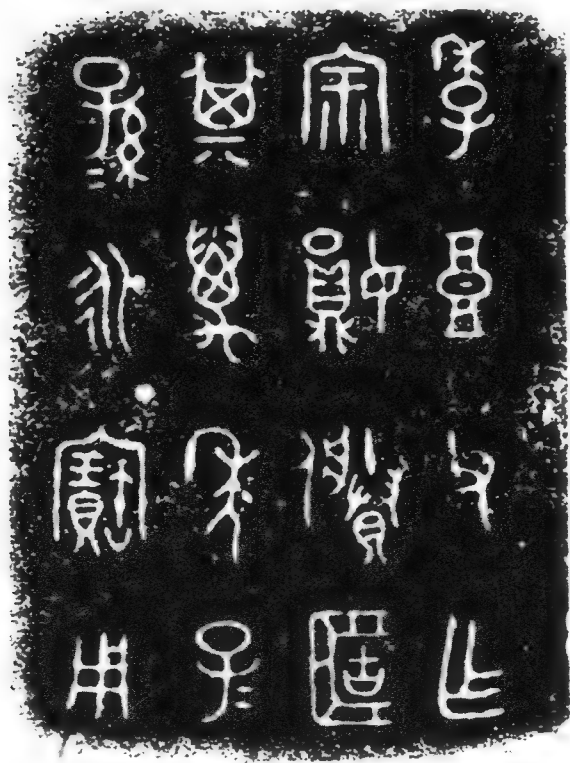 季良父乍
宗㜏賸簠
其萬年子=
孫=永寶用